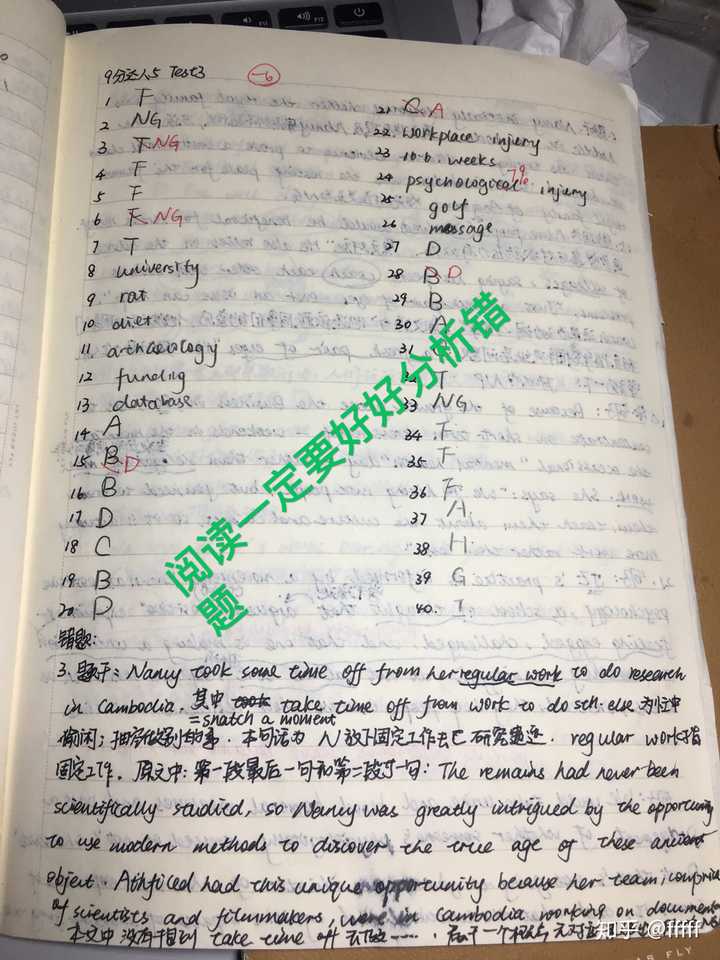 9分达人5 Test3 -6
1 F
2 NG
3 T NG
4 F
5 F
6 F NG
7 T
8 university
9 rat
10 diet
11 archaeology
12 funding
13 database
14 A
15 B D
16 B
17 D
18 C
19 B
20 D
21 C A
22 workplace injury
23 10.6 weeks
24 psychological injury 7%
25 golf
26 massage
27 D
28 B D
29 B
30 A
31
32 T
33 NG
34 F
35 F
36 F
37 A
38 H
39 G
40 I
阅读一定要好好分析错
题
错题:
3. 题干: Nancy took some time off from her regular work to do research
in Cambodia. 其中 took take time off from work to do sth. else 为忙中
= snatch a moment
偷闲; 抽空做别的事. 本句话为 N放下固定工作去 研究 regular work 指
固定工作. 原文中: 第一段最后一句和第二段首句: The remains had never been
scientifically studied, so Nancy was greatly intrigued by the opportunity
to use modern methods to discover the true age of these ancient
object. had this unique opportunity because her team, compris
of scientists and filmmakers, were in Cambodia working on document
本文中没有提到 take time off 去做……
知乎 @fffff